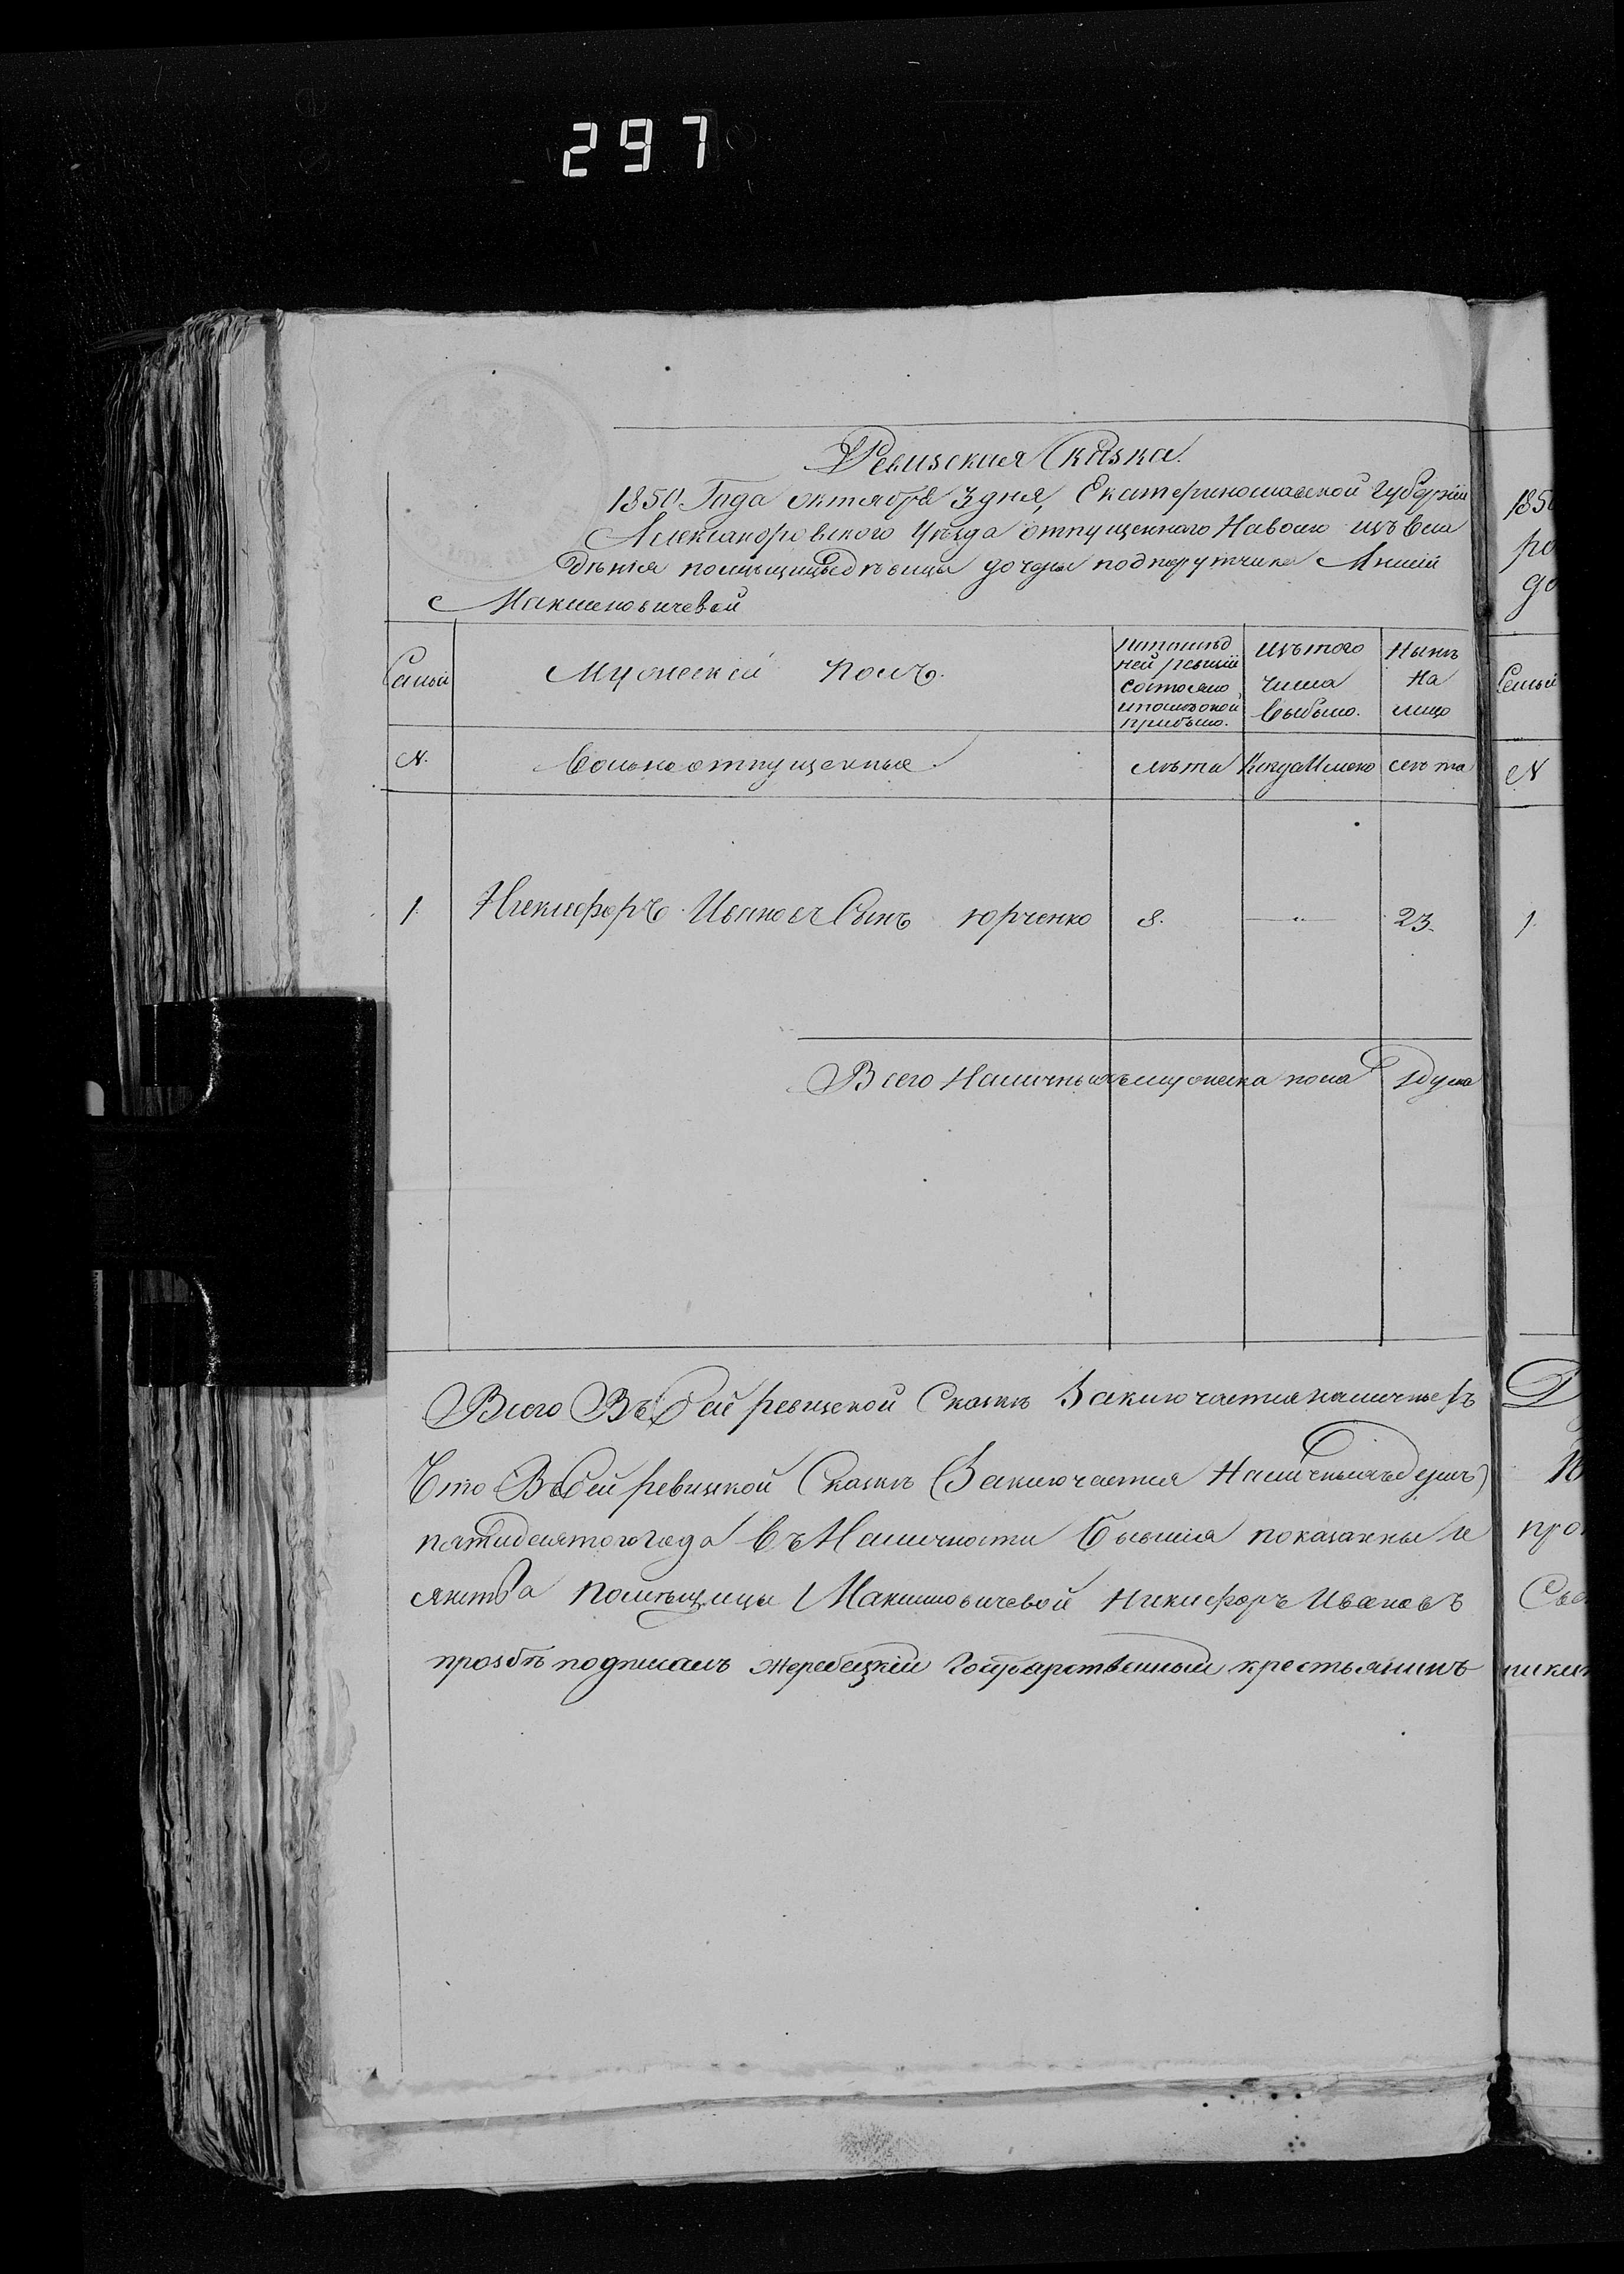 297
Ревизская Сказка.
1850. Года октября 3 дня, Екатеринославской губернiи
Александровского Уезда отпущенного На волю изъ вла
дѣнiя помѣщицы дѣвицы дочери подпорутчика
Максимовичевой
Семьи
Мужескiй полъ.
По послѣд
ней ревизiи
состояло
и после оной
прибыло.
Изъ того
числа
выбыло.
Нынѣ
На
лицо
Семьи
N.
Вольноотпущенные.
лѣта
Когда Именно
лѣта
N
1.
Никифоръ Ивановъ Сынъ юрченко
8.
— " —
23.
1.
Всего Наличныхъ мужеска пола 1 душа
Всего Въ Сей ревизской Сказкѣ Заключается наличныхъ
Что Въ Сей ревизкой Сказкѣ (Заключается Наличныхъ душъ)
пятидесятого года въ Наличности бывшiя показанны и
помѣщицы Максимовичевой Никифоръ Ивановъ
прозбѣ подписалъ жеребецкiй Государственный крестьянинъ
1850
ро
до
про
Сво